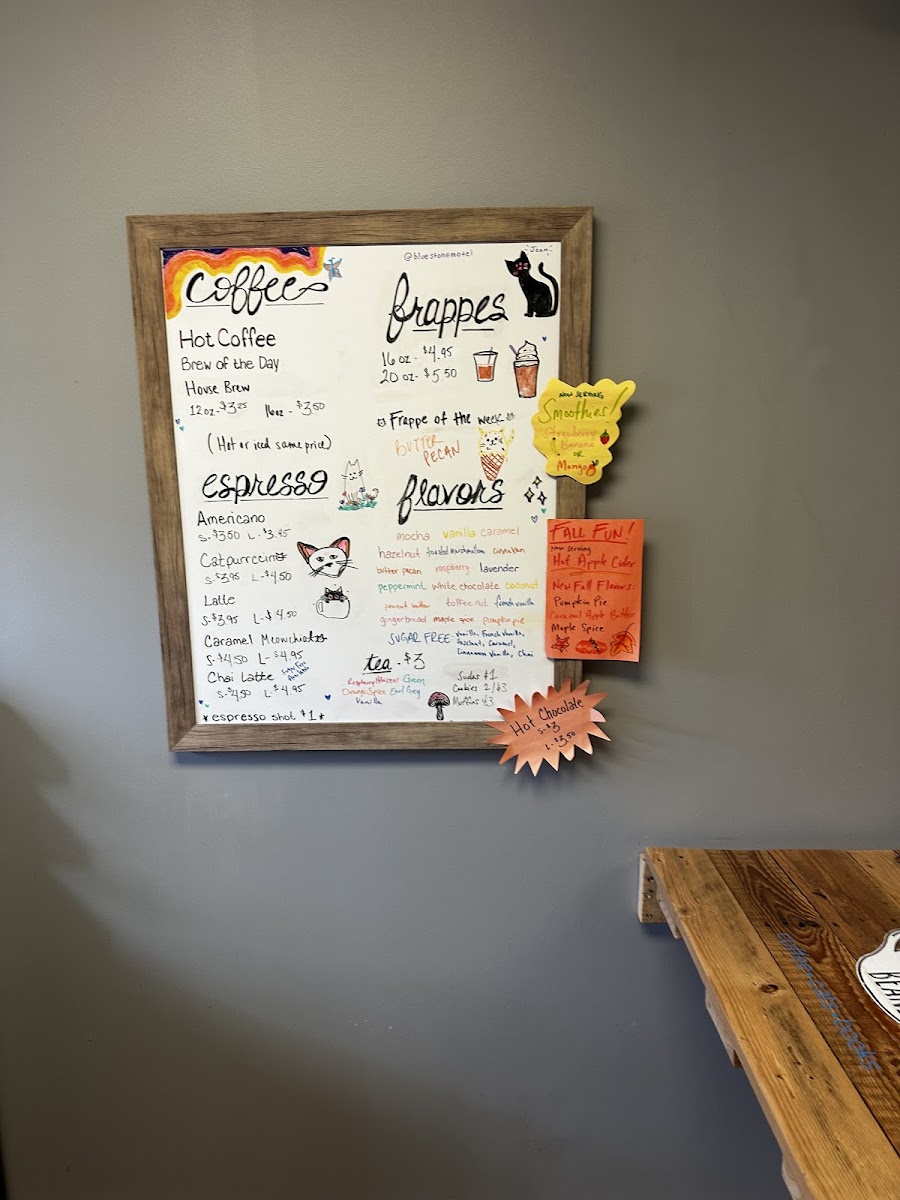 coffee
Hot Coffee
Brew of the Day
House Brew
12oz-$3.25 16oz-$3.50
(Hot or iced same price)
espresso
Americano
S-$3.50 L-$3.95
Catpurrccino
S-$3.95 L-$4.50
Latte
S-$3.95 L-$4.50
Caramel Meowchiato
S-$4.50 L-$4.95
Chai Latte
Sugar Free Available
S-$4.50 L-$4.95
*espresso shot $1*
@bluestonemotel
Jean
frappes
16oz-$4.95
20oz-$5.50
Frappe of the week
BUTTER
PECAN
flavors
mocha vanilla caramel
hazelnut toasted marshmallow cinnabon
butter pecan raspberry lavender
peppermint white chocolate coconut
peanut butter toffee nut french vanilla
gingerbread maple spice pumpkin pie
SUGAR FREE: Vanilla, French Vanilla,
Hazelnut, Caramel,
Cinnamon Vanilla, Chai
tea-$3
Raspberry Hibiscus Green
Orange Spice Earl Grey
Vanilla
Sodas $1
Cookies 2/$3
Muffins $3
NOW SERVING
Smoothies!
Strawberry
Banana
OR
Mango
FALL FUN!
Now Serving
Hot Apple Cider
New Fall Flavors:
Pumpkin Pie
Caramel Apple Butter
Maple Spice
Hot Chocolate
S-$3
L-$3.50